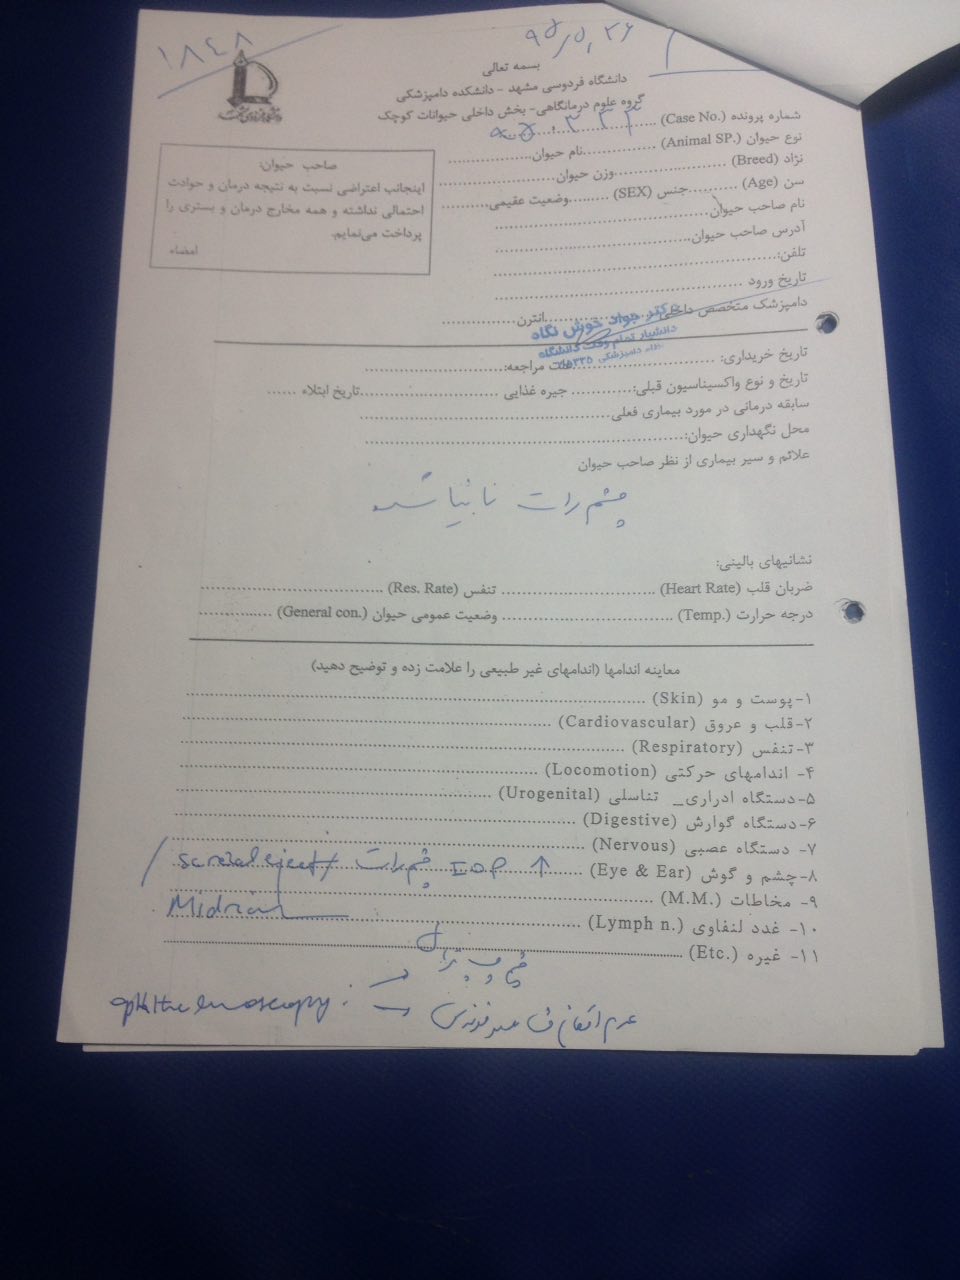 ۱۸۴۸
۹۵٫۵٫۲۶
بسمه تعالی
دانشگاه فردوسی مشهد - دانشکده دامپزشکی
گروه علوم درمانگاهی- بخش داخلی حیوانات کوچک
صاحب حیوان:
اینجانب اعتراضی نسبت به نتیجه درمان و حوادث
احتمالی نداشته و همه مخارج درمان و بستری را
پرداخت می‌نمایم.
امضاء
شماره پرونده (Case No.)
نوع حیوان (Animal SP.) نام حیوان
نژاد (Breed) وزن حیوان
سن (Age) جنس (SEX) وضعیت عقیمی
نام صاحب حیوان
آدرس صاحب حیوان
تلفن:
تاریخ ورود
دامپزشک متخصص داخلی انترن
دکتر جواد خوش نگاه
دانشیار تمام وقت دانشگاه
تاریخ خریداری: علت مراجعه:
تاریخ و نوع واکسیناسیون قبلی: جیره غذایی تاریخ ابتلاء
سابقه درمانی در مورد بیماری فعلی
محل نگهداری حیوان:
علائم و سیر بیماری از نظر صاحب حیوان
چشم راست نابینا شده
نشانیهای بالینی:
ضربان قلب (Heart Rate) تنفس (Res. Rate)
درجه حرارت (Temp.) وضعیت عمومی حیوان (General con.)
معاینه اندامها (اندامهای غیر طبیعی را علامت زده و توضیح دهید)
۱-پوست و مو (Skin)
۲-قلب و عروق (Cardiovascular)
۳-تنفس (Respiratory)
۴- اندامهای حرکتی (Locomotion)
۵-دستگاه ادراری_ تناسلی (Urogenital)
۶-دستگاه گوارش (Digestive)
۷- دستگاه عصبی (Nervous)
۸-چشم و گوش (Eye & Ear) IOP ↑ چشم راست
۹- مخاطات (M.M.)
۱۰- غدد لنفاوی (Lymph n.)
۱۱- غیره (Etc.)